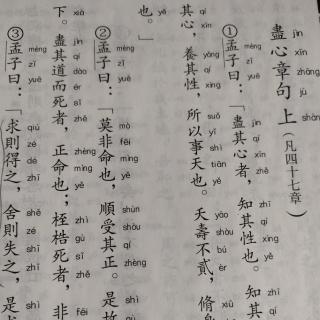 盡心章句上(凡四十七章)
jìn xīn zhāng jù
①孟子曰：「盡其心者，知其性也。知其
mèng zǐ yuē jìn qí xīn zhě zhī qí xìng yě zhī qí
其心，養其性，所以事天也。夭壽不貳，脩
qí xīn yǎng qí xìng suǒ yǐ shì tiān yě yāo shòu bú èr xiū
也。」
yě
②孟子曰：「莫非命也，順受其正。是故
mèng zǐ yuē mò fēi mìng yě shùn shòu qí zhèng shì gù
下。盡其道而死者，正命也；桎梏死者，非
xià jìn qí dào ér sǐ zhě zhèng mìng yě zhì gù sǐ zhě fēi
③孟子曰：「求則得之，舍則失之，是
mèng zǐ yuē qiú zé dé zhī shě zé shī zhī shì